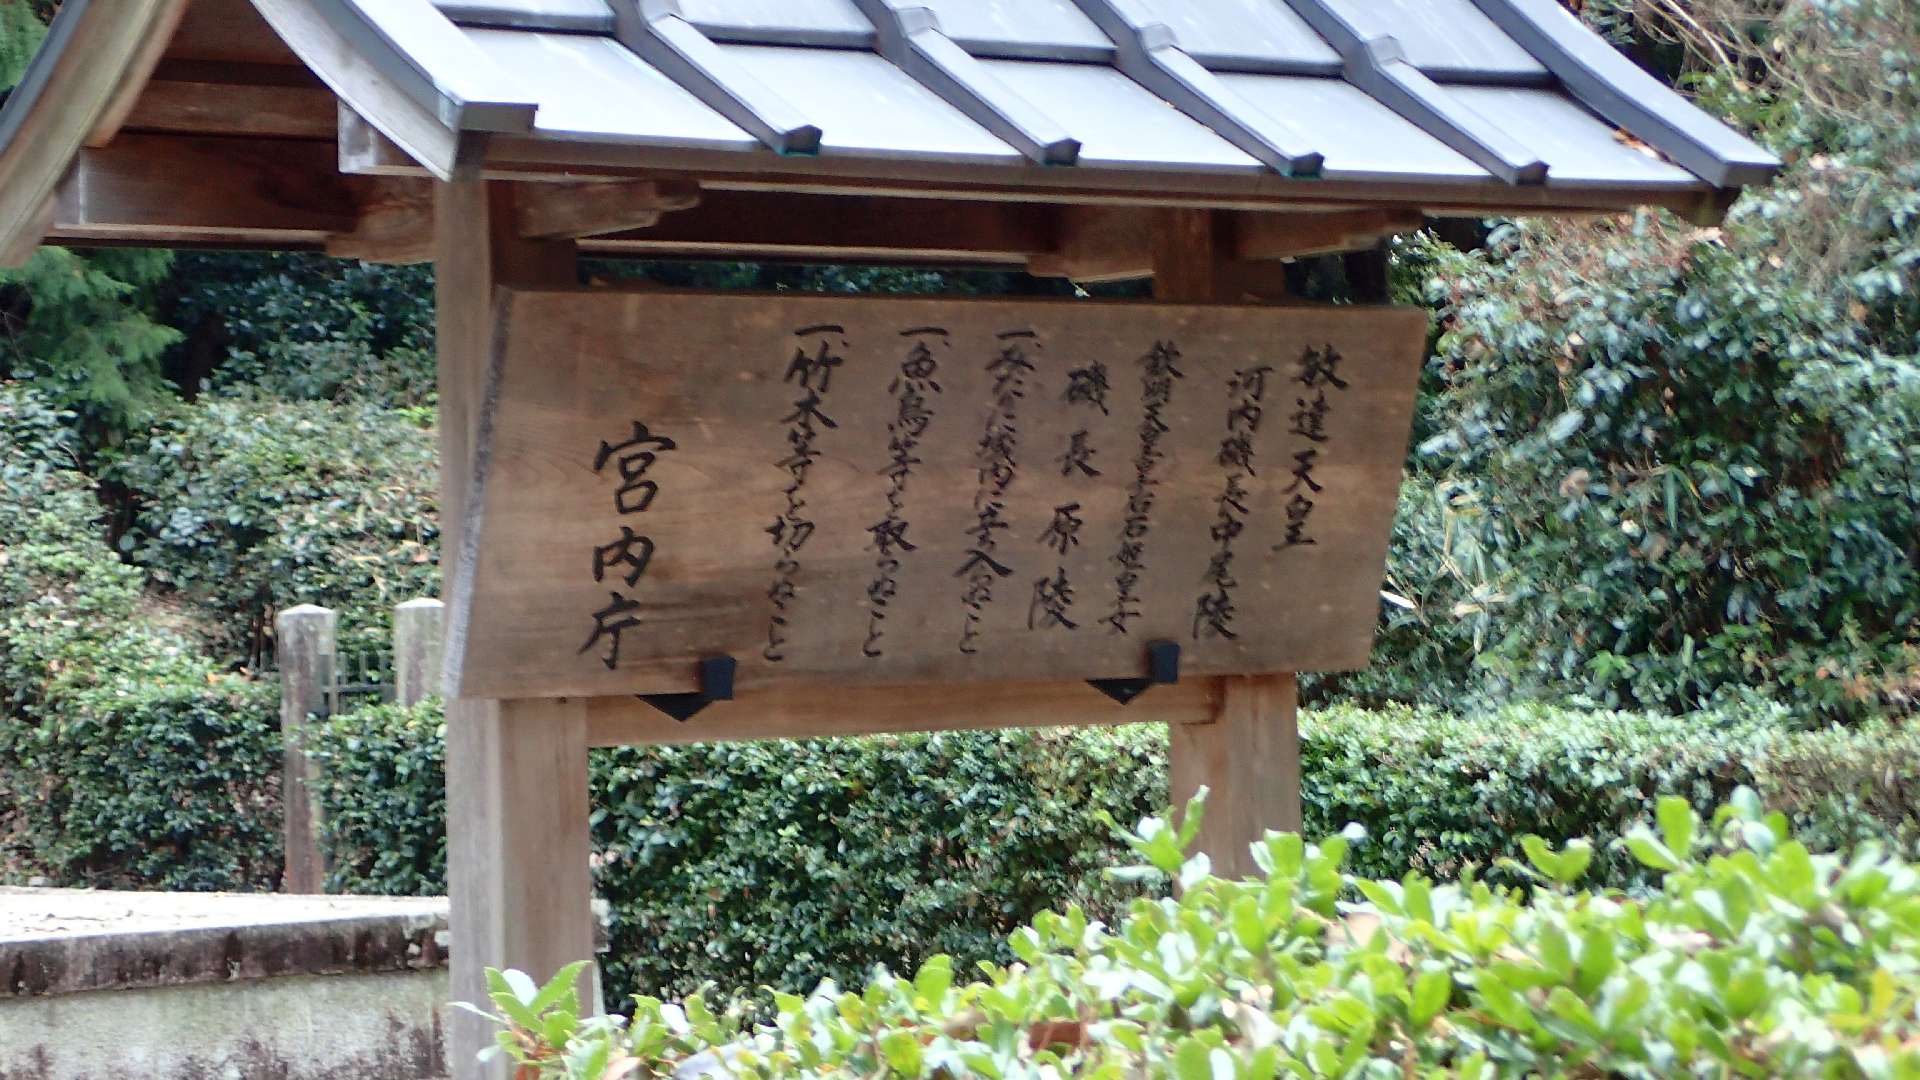 敏達天皇
河内磯長中尾陵
欽明天皇皇后石姫皇女
磯長原陵
一、みだりに域内に立入らぬこと
一、魚鳥等を取らぬこと
一、竹木等を切らぬこと
宮内庁